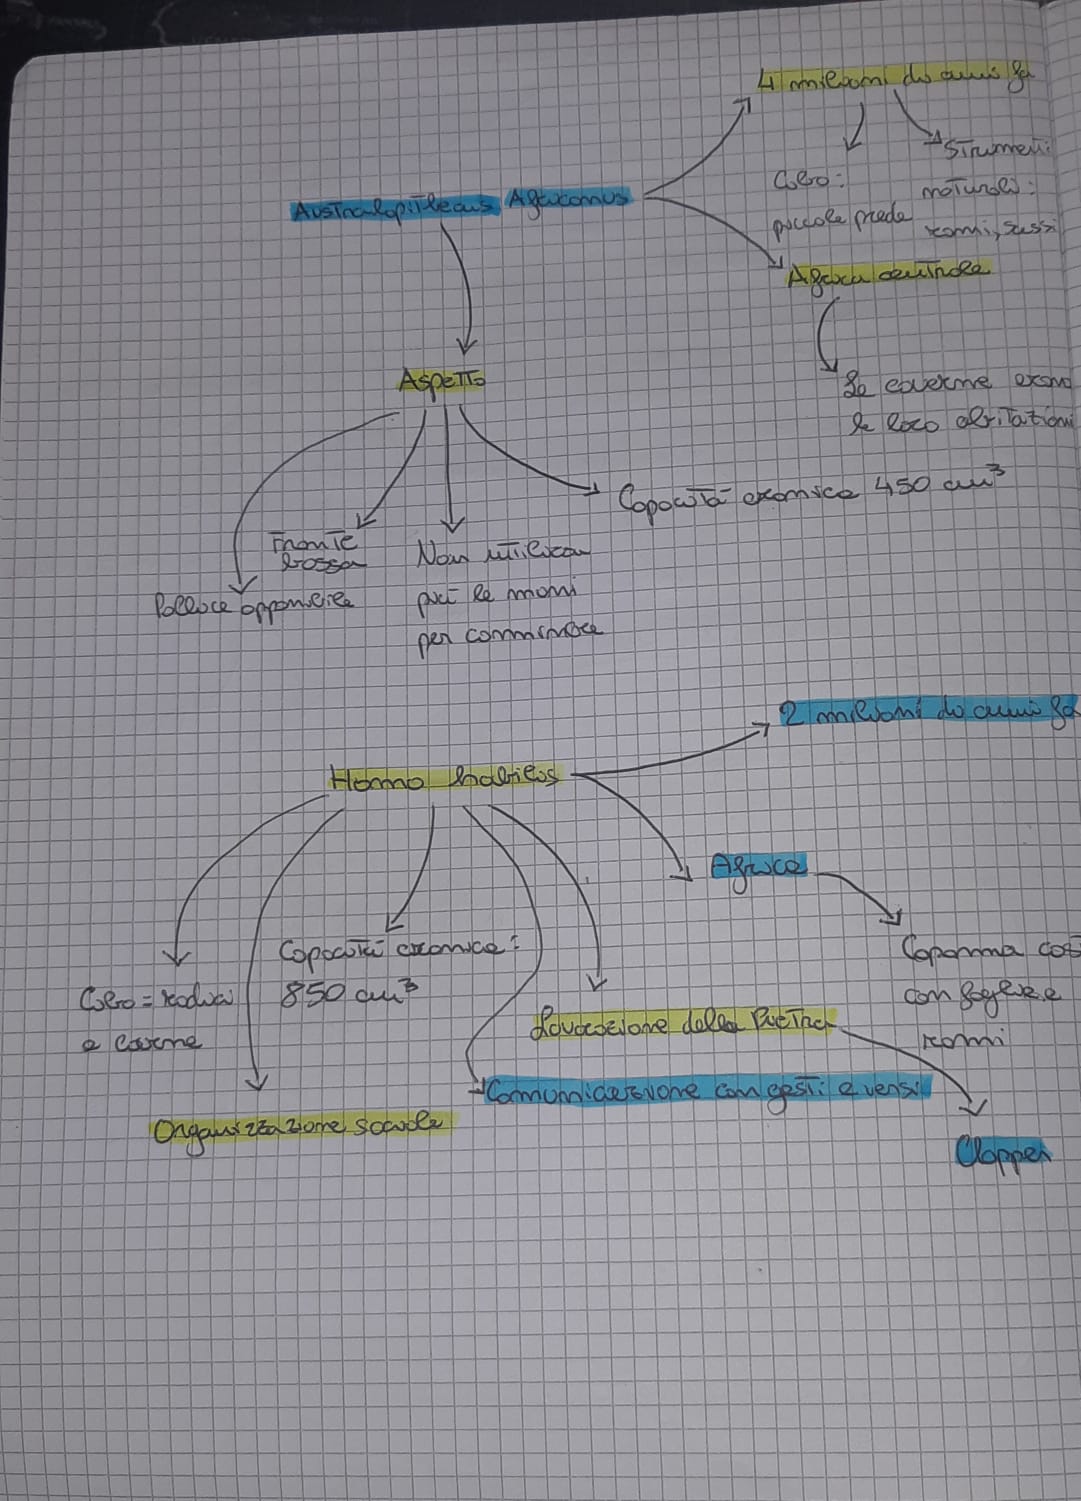 4 milioni di anni fa
Australopithecus Africanus
Cibo:
piccole prede
Strumenti
naturali:
rami, sassi
Africa centrale
Le caverne erano
le loro abitazioni
Aspetto
Pollice opponibile
Fronte
bassa
Non utilizza
più le mani
per camminare
Capacità cranica 450 cm³
2 milioni di anni fa
Homo habilis
Africa
Capanna
con foglie e
rami
Cibo = radici
e carne
Capacità cranica:
850 cm³
Lavorazione della Pietra
Comunicazione con gesti e versi
Organizzazione sociale
Clopper